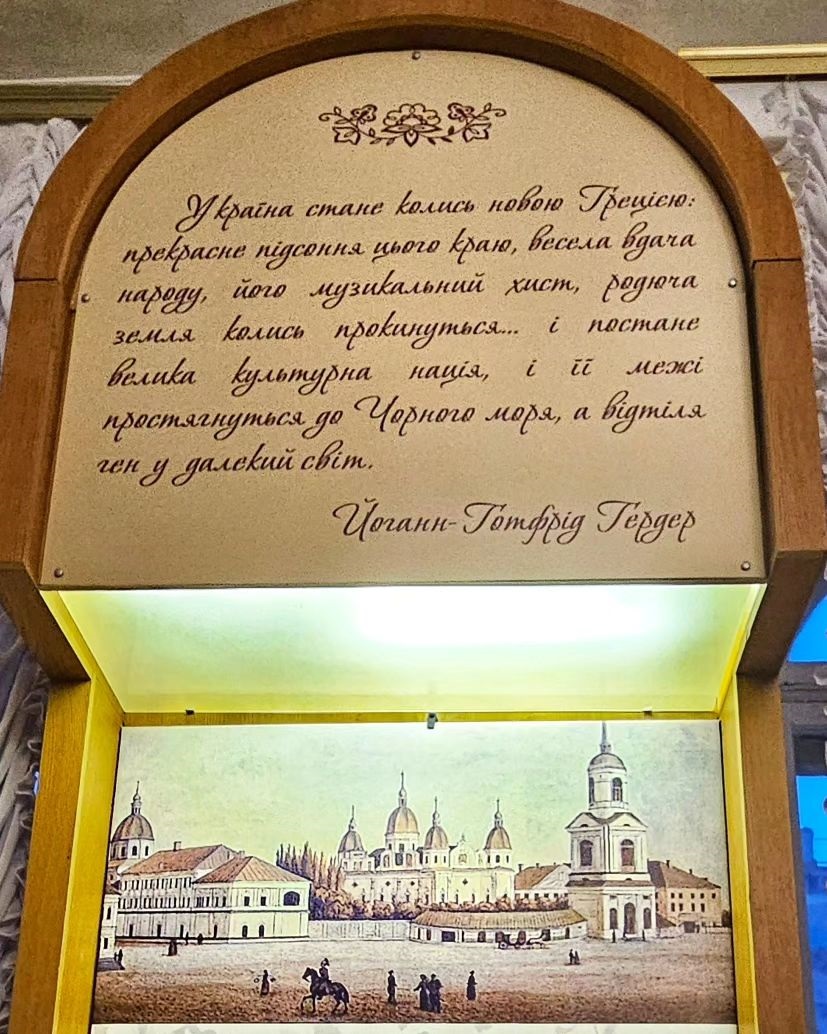 Україна стане колись новою Грецією:
прекрасне підсоння цього краю, весела вдача
народу, його музикальний хист, родюча
земля колись прокинуться... і постане
велика культурна нація, і її межі
простягнуться до Чорного моря, а відтіля
ген у далекий світ.
Йоганн-Готфрід Гердер